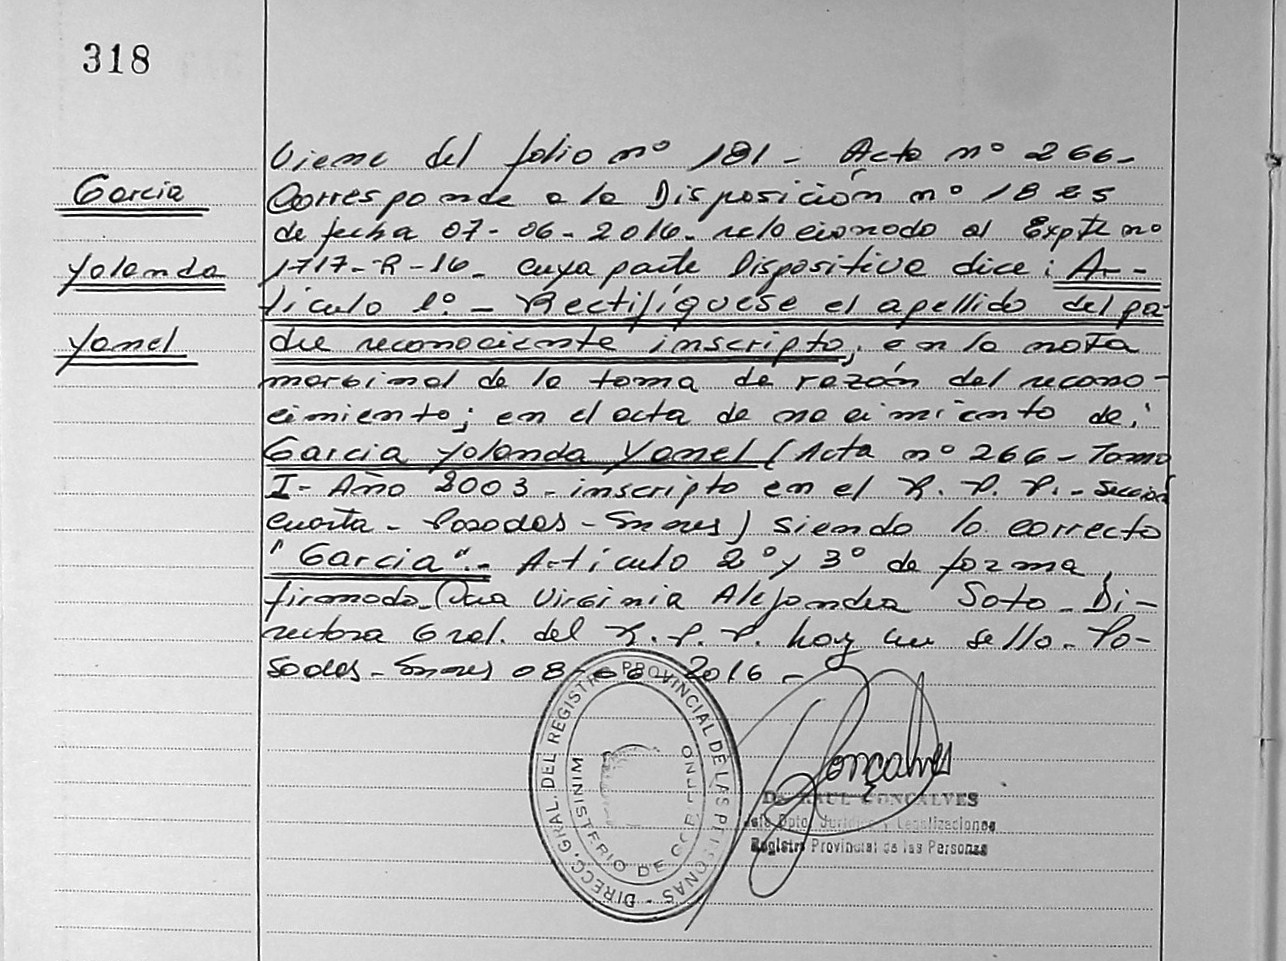 318
Garcia
Yolanda
Yanel
Viene del folio nº 181 - Acta nº 266 -
Corresponde a la Disposición nº 1825
de fecha 07-06-2016. relacionado al Expte nº
1717-R-16- cuya parte Dispositiva dice: Ar-
tículo 1º - Rectifíquese el apellido del pa-
dre reconociente inscripto, en la nota
marginal de la toma de razón del recono-
cimiento; en el acta de nacimiento de:
Garcia Yolanda Yanel (Acta nº 266 - Tomo
I - Año 2003 - inscripto en el R. P. P. - Sección
cuarta - Posadas - Mnes) siendo lo correcto
"Garcia".- Artículo 2º y 3º de forma,
firmado. Dra Virginia Alejandra Soto - Di-
rectora Gral. del R. P. P. hay un sello. Po-
sadas - Mnes 08-06-2016 -
DIRECC. GRAL. DEL REGISTRO PROVINCIAL DE LAS PERSONAS
MINISTERIO DE GOBIERNO
Gonçalves
Dr. RAUL GONCALVES
Jefe Dpto. Jurídico y Legalizaciones
Registro Provincial de las Personas